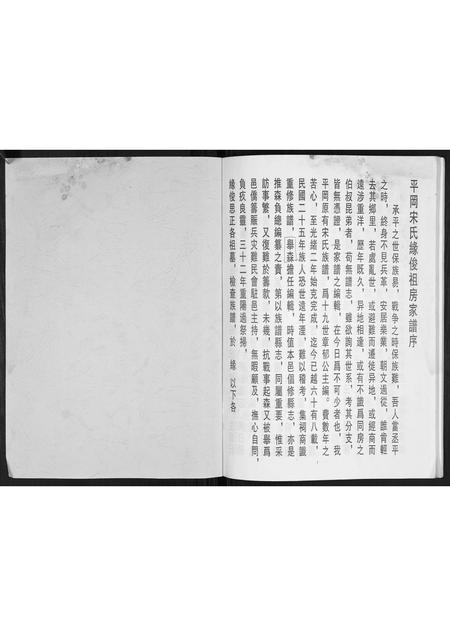 平岡宋氏緣俊祖房家譜序
承平之世保族易，戰爭之時保族難，吾人當丞平
之時，終身不見兵革，安居樂業，朝文過從，誰肯輕
去其鄉里，若處亂世，或避難而遷徙异地，或經商而
遠涉重洋，歷年既久，异地相逢，或有不識爲同房之
伯叔昆弟者，苟無譜志，雖欲詢其世系，考其分支，
皆無憑證，是家譜之編輯，在今日爲不可少者也，我
平岡原有宋氏族譜，爲十九世章郁公主編。費數年之
苦心，至光緒二年始克完成，迄今已越六十有八載，
民國二十五年族人恐世遠年湮，難以稽考，集祠商議
重修族譜，舉森擔任編輯，時值本邑倡修縣志，亦是
推森負總編纂之責，第以族譜縣志，同屬重要，惟采
訪事繁，又復難於籌款，未幾，抗戰事起森又被舉爲
邑僑籌賑兵灾難民會駐邑主持，無暇顧及，撫心自問，
負疚良靈，三十二年重陽過祭掃，
緣俊思正各祖墓，檢查族譜，於 緣 以下各